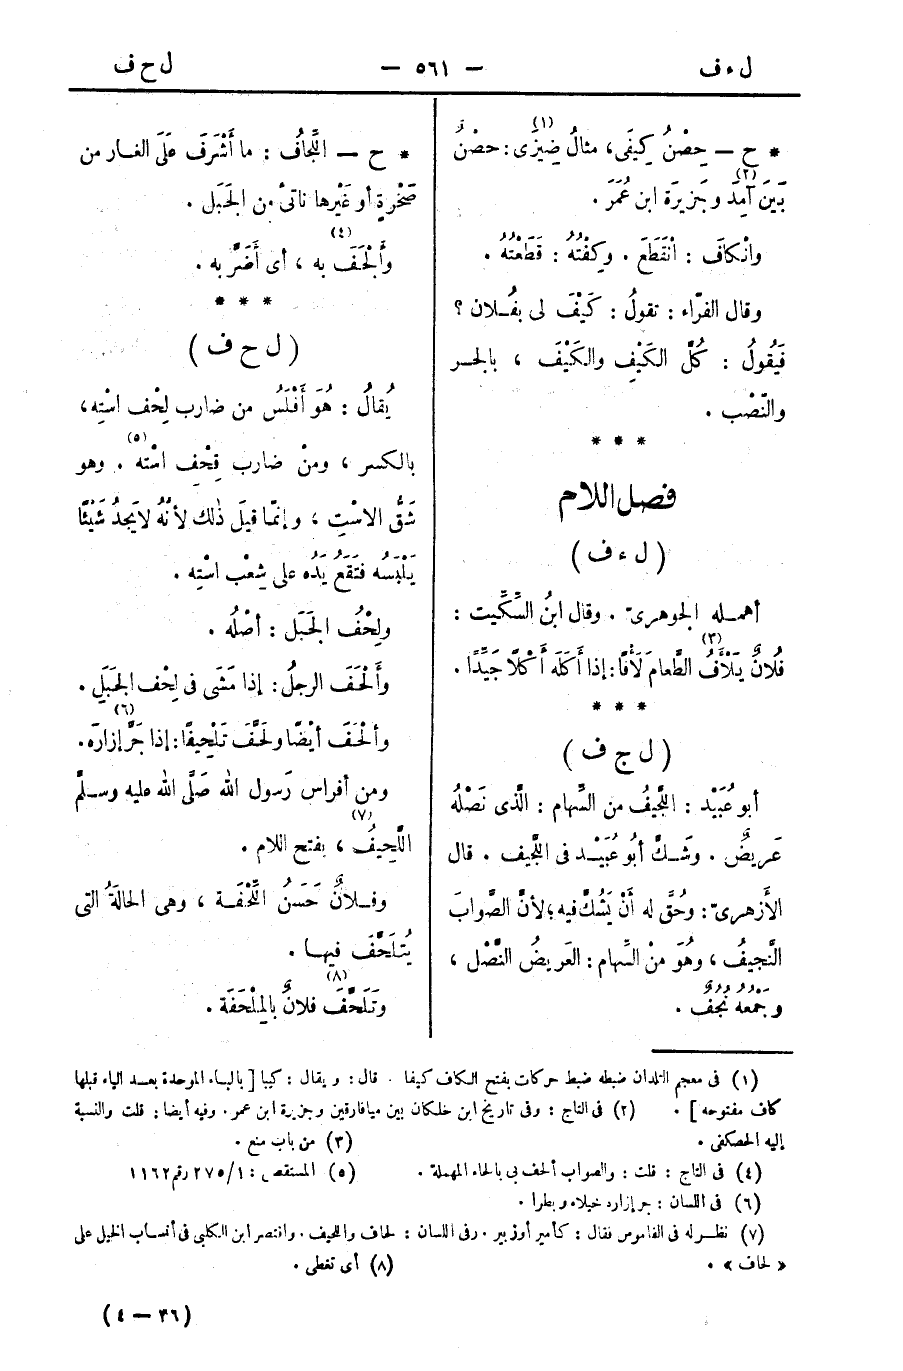 ل ء ف
— ٥٦١ —
ل ح ف
* ح — حِصْنُ كِيفَى، مثالُ ضِيزَى(١): حصْنٌ
بَيْنَ آمِدَ(٢) وجَزِيرَة ابن عُمَرَ.
وانْكافَ : انْقَطَعَ . وكِفْتُهُ : قَطَعْتُهُ .
وقال الفرّاء : تقولُ : كَيْفَ لى بفُلان ؟
فَيَقُولُ : كُلَّ الكَيْفِ والكَيْفَ ، بالجر
والنَّصْب .
* * *
فصل اللام
( ل ء ف )
أهمله الجوهرىّ . وقال ابنُ السِّكِّيت :
فُلانٌ يَلْأَفُ الطَّعامَ لَأْفًا(٣): إذا أَكَلَه أَكْلًا جَيِّدًا .
* * *
( ل ج ف )
أبو عُبَيْد : اللَّجِيفُ من السِّهام : الَّذى نَصْلُهُ
عَرِيضٌ . وشَكَّ أبو عُبَيْد فى اللَّجِيف . قال
الأزهرىّ : وحُقَّ له أَنْ يَشُكَّ فيه؛ لأنَّ الصَّوابَ
النَّجِيفُ ، وهُوَ مِنْ السِّهام : العَرِيضُ النَّصْل ،
وجَمْعُهُ نُجُفٌ .
* ح — اللِّجافُ : ما أَشْرَفَ عَلَى الغار من
صَخْرةٍ أو غَيْرِها ناتئٌ من الجَبَل .
وأَلْجَفَ به(٤) ، أى أَضَرَّ به .
* * *
( ل ح ف )
يُقالُ : هُوَ أَفْلَسُ من ضارب لِحْف اسْتِه ،
بالكسر ، ومنْ ضارب قِحْف اسْتِه(٥) . وهو
شَقُّ الاسْتِ ، وإنَّما قيلَ ذٰلك لأنَّهُ لا يَجِدُ شَيْئًا
يَلْبَسُه فتَقَعُ يَدُه على شِعْب اسْتِه .
ولِحْفُ الجَبَل : أصْلُه .
وأَلْحَفَ الرجلُ : إذا مَشَى فى لِحْف الجَبَلِ .
وأَلْحَفَ أيْضًا ولَحَّفَ تَلْحِيفًا : إذا جَرَّ إزارَه(٦) .
ومن أفراس رَسول الله صَلَّى الله عليه وسلَّم
اللَّحِيفُ(٧) ، بفتح اللام .
وفلانٌ حَسَنُ اللِّحْفَة ، وهى الحالةُ التى
يُتَلَحَّف فيها .
وتَلَحَّفَ(٨) فلانٌ بالمِلْحَفَة .
(١) فى معجم البلدان ضبطه ضبط حركات بفتح الكاف كيفا . قال : ويقال : كيبا [ بالباء الموحدة بعد الياء قبلها
كاف مفتوحه ] . (٢) فى التاج : وفى تاريخ ابن خلكان بين ميافارقين وجزيرة ابن عمر . وفيه أيضا : قلت والنسبة
إليه الحصكفى . (٣) من باب منع .
(٤) فى التاج : قلت : والصواب ألحف بى بالحاء المهملة . (٥) المستقصى : ٢٧٥/١ رقم ١١٦٢
(٦) فى اللسان : جر إزاره خيلاء وبطرا .
(٧) نظر له فى القاموس فقال : كأمير أوزبير . وفى اللسان : لحاف واللحيف . واقتصر ابن الكلبى فى أنساب الخيل على
« لحاف » . (٨) أى تغطى .
(٣٦ — ٤)